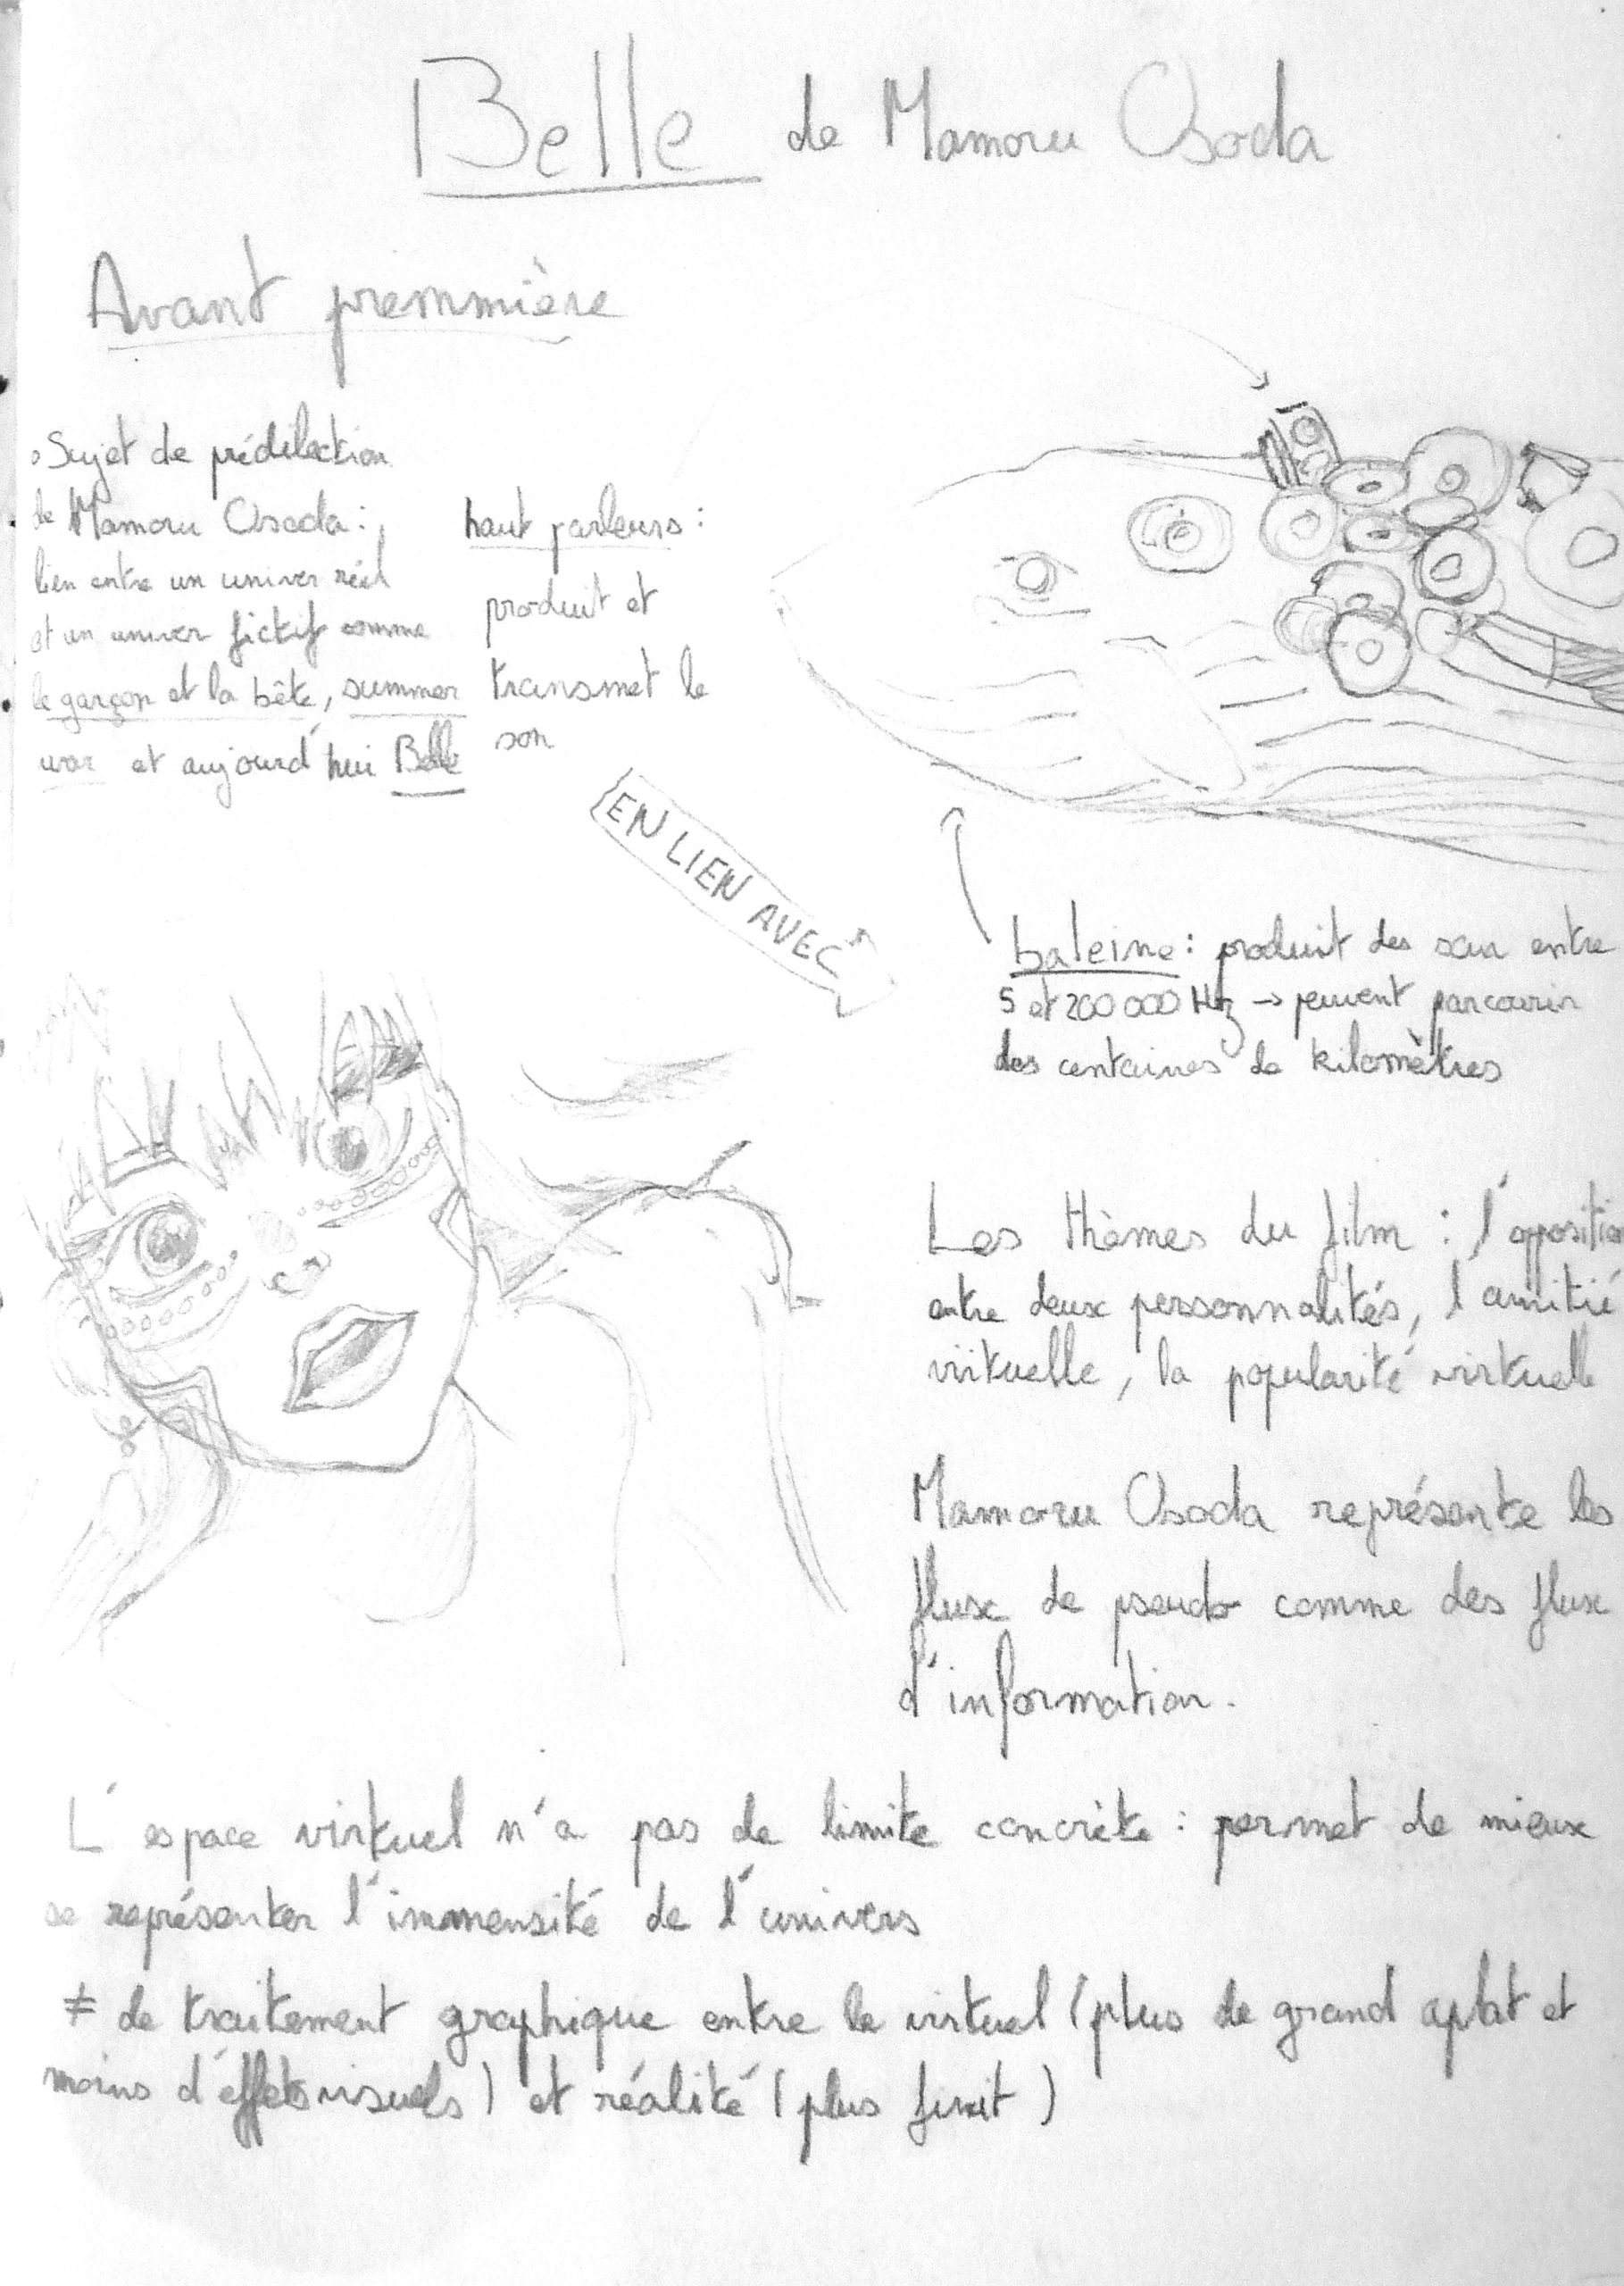 Belle de Mamoru Osoda
Avant premmière
Sujet de prédilection
de Mamoru Osoda :
lien entre un univer réel
et un univer fictif comme
le garçon et la bête, summer
war et aujourd'hui Belle
haut parleurs :
produit et
transmet le
son
EN LIEN AVEC
baleine : produit des son entre
5 et 200 000 Hz → peuvent parcourir
des centaines de kilomètres
Les thèmes du film : l'opposition
entre deux personnalités, l'amitié
virtuelle, la popularité virtuelle
Mamoru Osoda représente les
flux de pseudo comme des flux
d'information.
L'espace virtuel n'a pas de limite concrète : permet de mieux
se représenter l'immensité de l'univers
≠ de traitement graphique entre le virtuel (plus de grand aplat et
moins d'effets visuels) et réalité (plus finit)